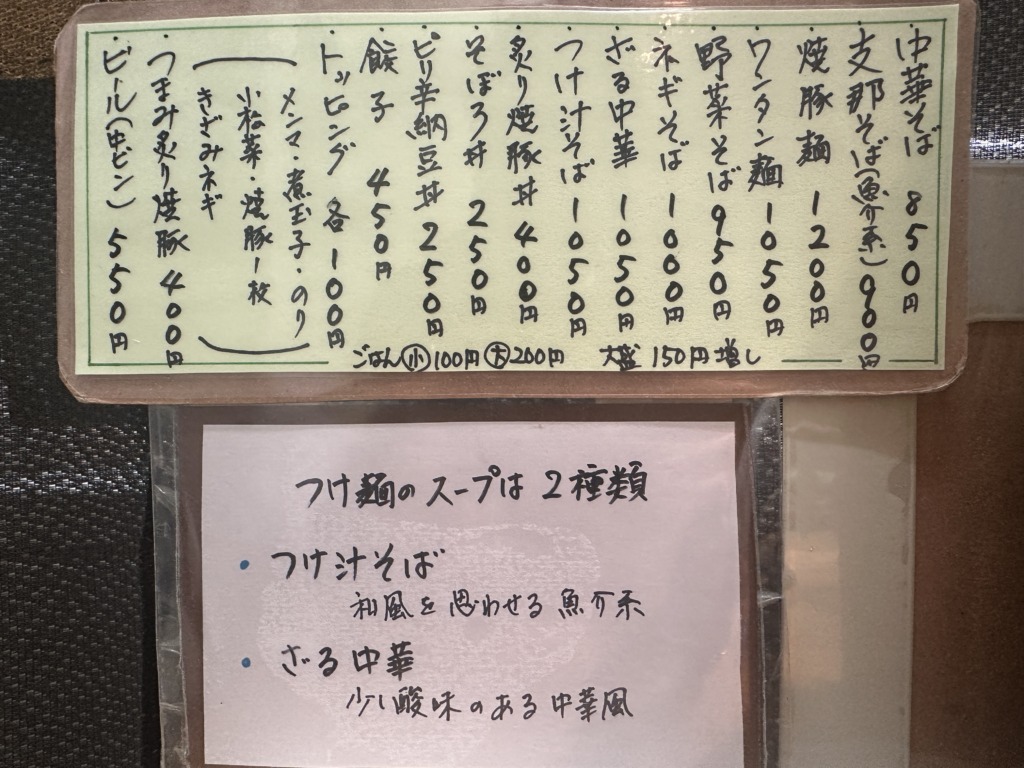 ・中華そば 850円
・支那そば(魚介系)900円
・焼豚麺 1200円
・ワンタン麺 1050円
・野菜そば 950円
・ネギそば 1000円
・ざる中華 1050円
・つけ汁そば 1050円
・炙り焼豚丼 400円
・そぼろ丼 250円
・ピリ辛納豆丼 250円
・餃子 450円
・トッピング 各100円
(メンマ・煮玉子・のり
小松菜・焼豚1枚
きざみネギ)
・つまみ炙り焼豚 400円
・ビール(中ビン) 550円
ごはん小100円大200円 大盛 150円増し
つけ麺のスープは2種類
・つけ汁そば
和風を思わせる魚介系
・ざる中華
少し酸味のある中華風